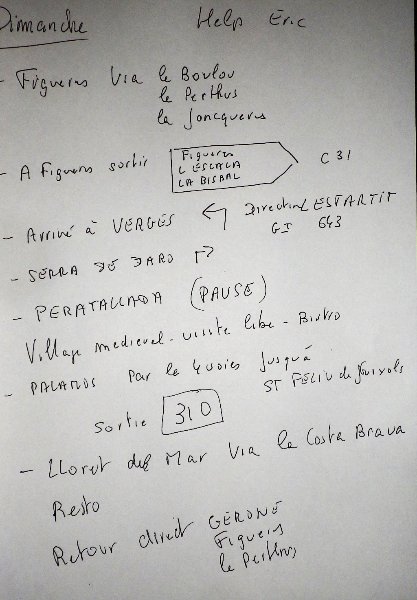 Dimanche Help Eric
- Figueras via le Boulou
le Perthus
la Joncqueras
- A Figueras sortir Figueras C 31
L'ESCALA
LA BISBAL
- Arrivé à VERGES ← Direction L'ESTARTIT
GI 643
- SERRA DE DARO
- PERATALLADA (PAUSE)
Village medieval - visite libe - Bistro
- PALAMOS Par le 4 voies jusqu'à
ST FÉLIU de Guixols
Sortie 310
- Lloret del Mar via la Costa Brava
Resto
Retour direct GERONE
Figueras
le Perthus